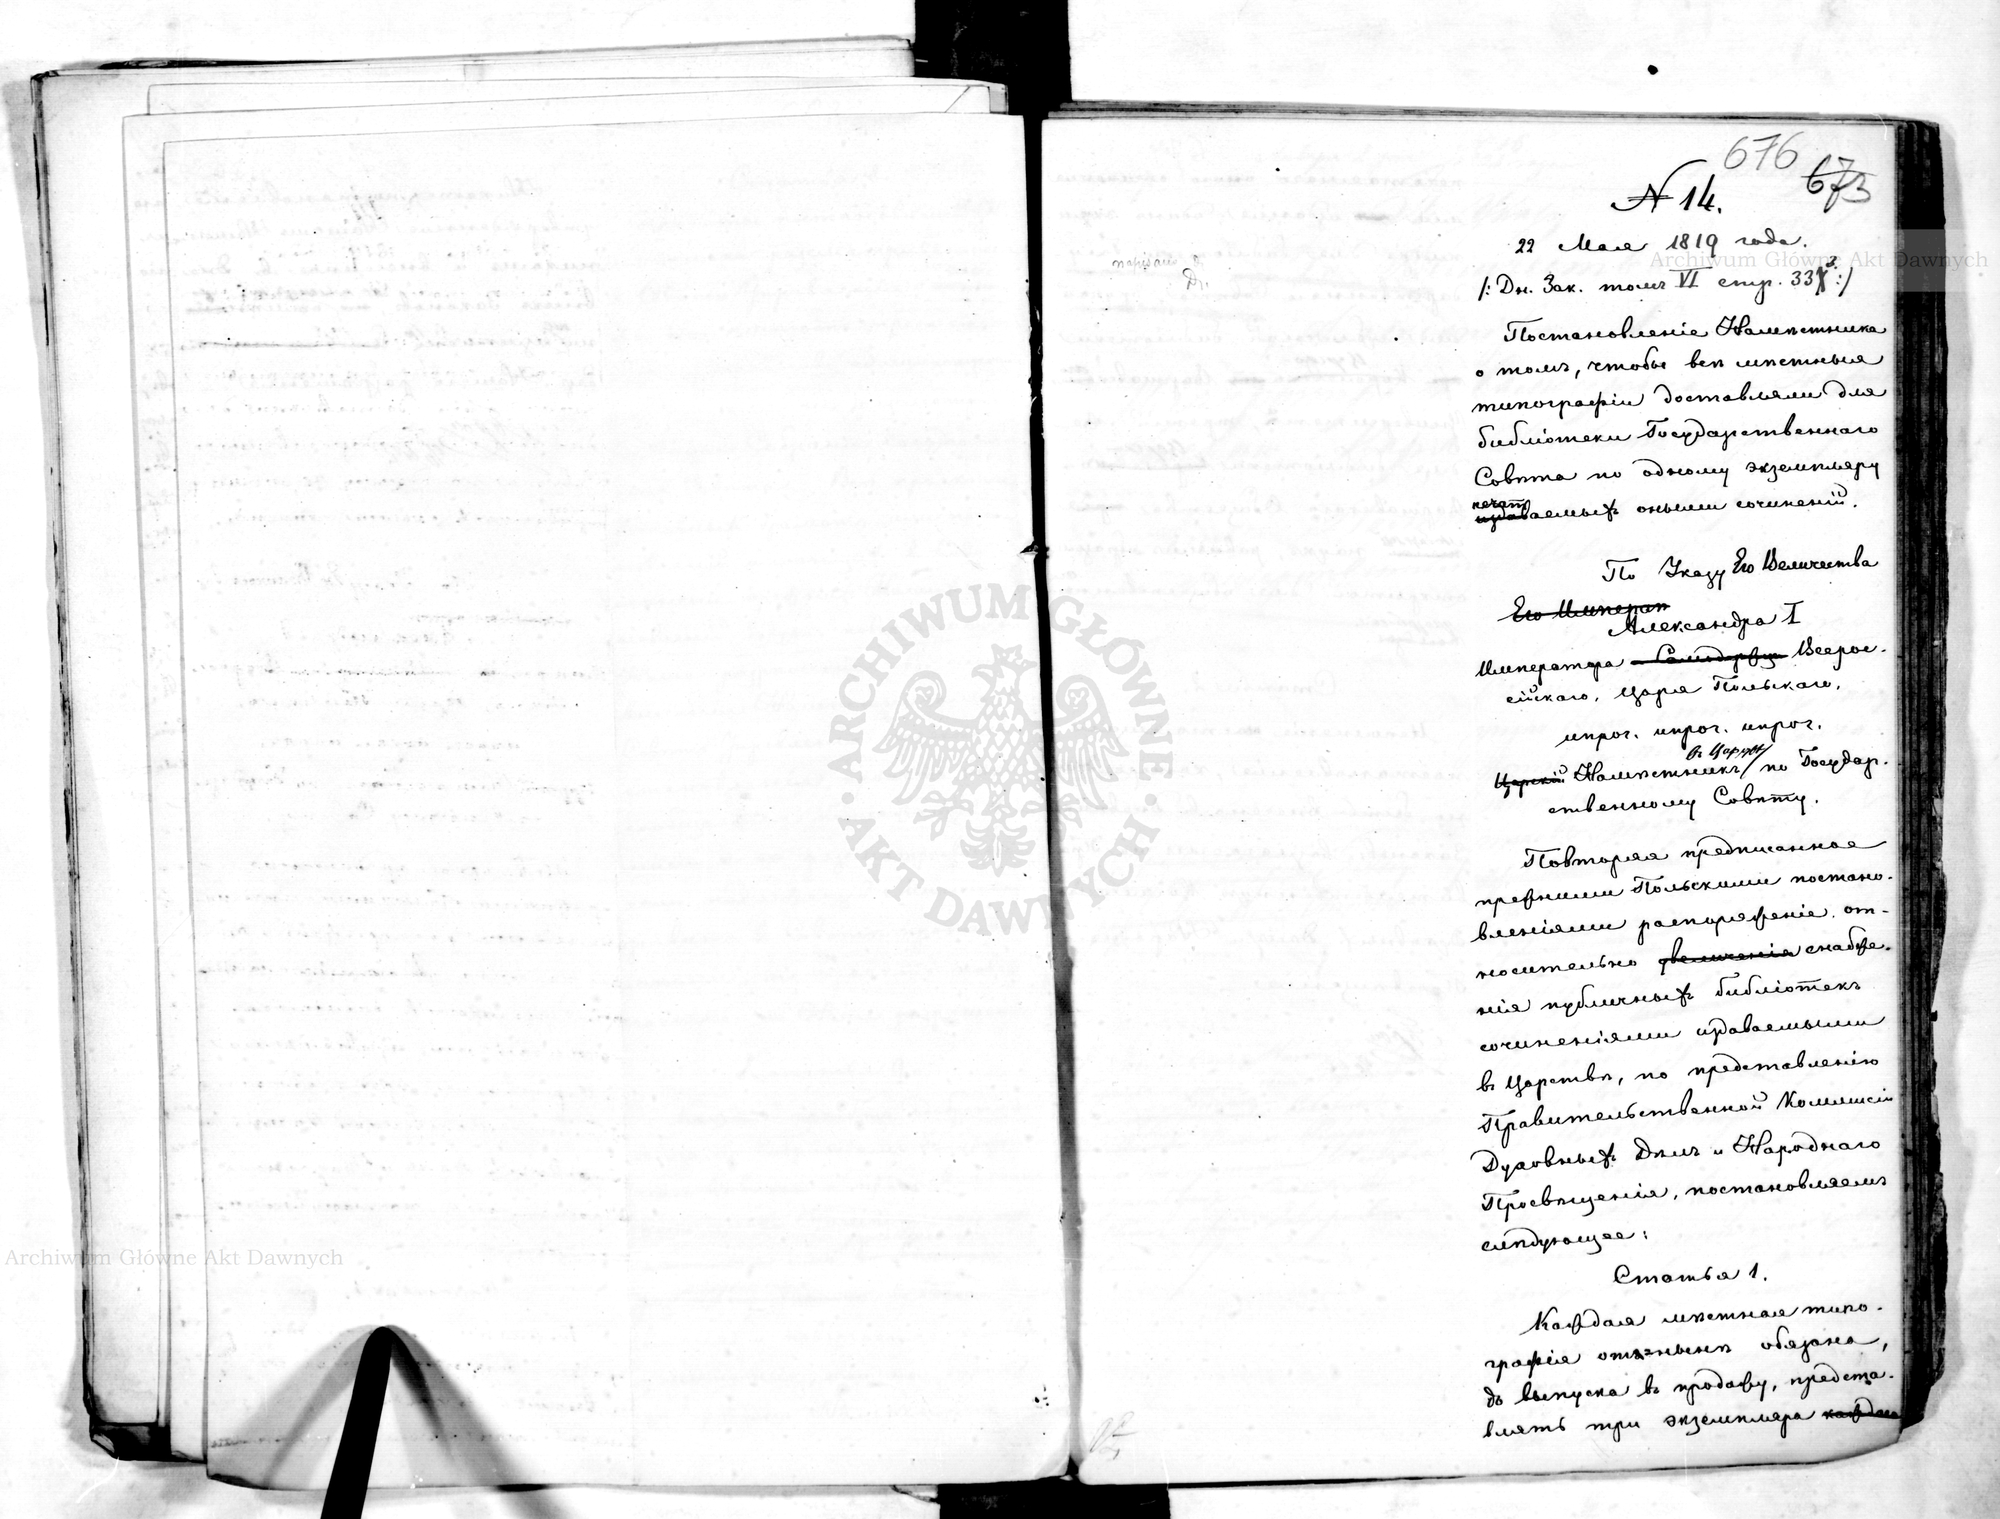 676
673
N 14.
22 Мая 1819 года.
/: Дн. Зак. томъ VI стр. 33 :/
Постановленіе Намѣстника
о томъ, чтобы всѣ мѣстныя
типографіи доставляли для
библіотеки Государственнаго
Совѣта по одному экземпляру
печат
издаваемыхъ оными сочиненій.
По Указу Его Величества
Его Императ
Александра I
Императора Самодержца Всерос-
сійскаго, Царя Польскаго,
ипроч. ипроч. ипроч.
въ Царствѣ
Царскій Намѣстникъ по Государ-
ственному Совѣту.
Повторяя предписанное
прежними Польскими постано-
вленіями распоряженіе, от-
носительно увеличенія снабже-
нія публичныхъ библіотекъ
сочиненіями издаваемыми
въ Царствѣ, по представленію
Правительственной Коммисіи
Духовныхъ Дѣлъ и Народнаго
Просвѣщенія, постановляемъ
слѣдующее:
Статья 1.
Каждая мѣстная типо-
графія отнынѣ обязана,
до выпуска въ продажу, предста-
влять три экземпляра каждаго
Archiwum Główne Akt Dawnych
ARCHIWUM GŁÓWNE AKT DAWNYCH
Archiwum Główne Akt Dawnych